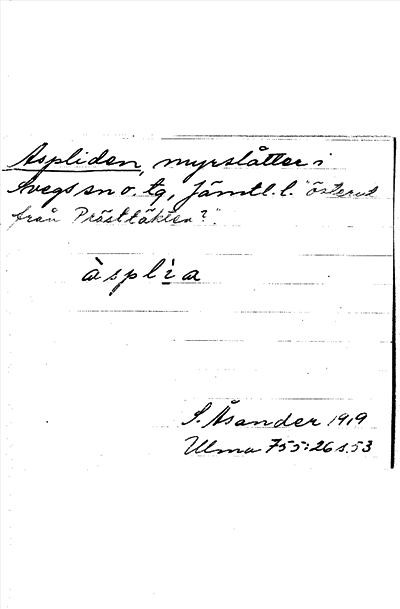 Aspliden, myrslåtter i
Svegs sn o. tg, Jämtl. l. "österut
från Prästtäkten?".
àsplìa
S. Åsander 1919
Ulma 755:26 s.53